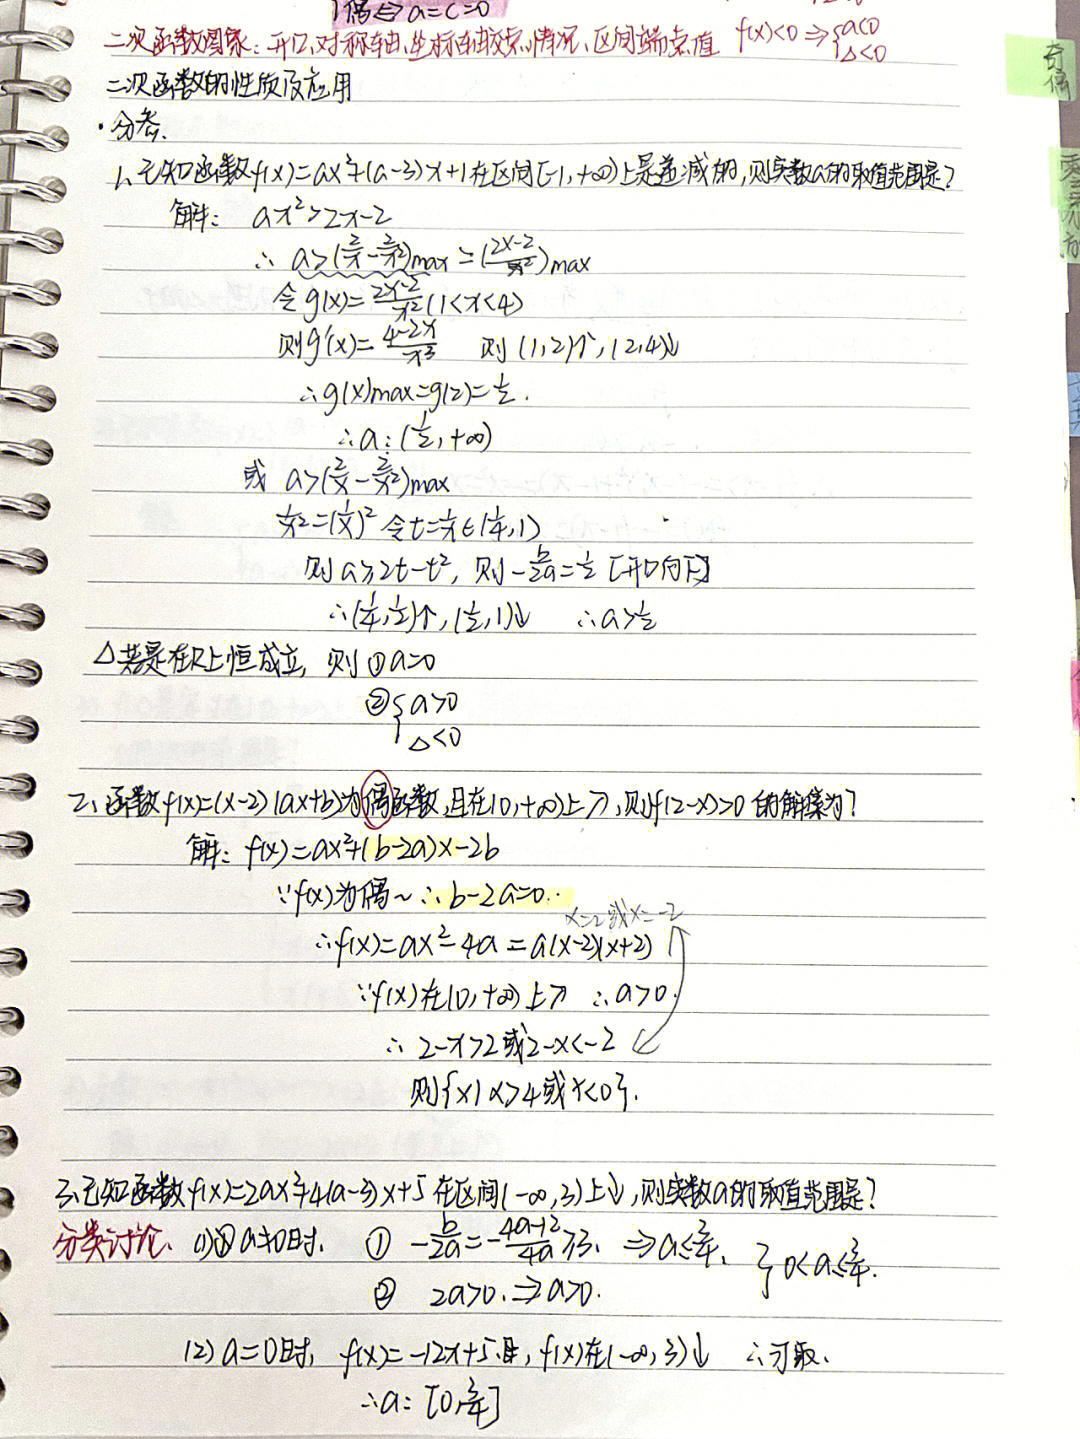 偶⇔a=c=0
二次函数图象:开口、对称轴、坐标轴交点情况、区间端点值 f(x)<0⇒{a<0
△<0
奇偶
二次函数的性质及应用
·分参.
1、已知函数f(x)=ax²+(a-3)x+1在区间[-1,+∞)上是递减的,则实数a的取值范围是?
解: ax²>2x-2
∴ a>(2/x-2/x²)max=(2x-2/x²)max
令g(x)=2x-2/x²(1<x<4)
则g'(x)=4-2x/x³ 则(1,2)↑,(2,4)↓
∴g(x)max=g(2)=1/2.
∴a:(1/2,+∞)
或 a>(2/x-2/x²)max
1/x²=(1/x)² 令t=1/x∈(1/4,1)
则a>2t-t²,则-b/2a=1/2 [开口向下]
∴(1/4,1/2)↑,(1/2,1)↓ ∴a>1/2
△若是在R上恒成立,则①a=0
②{a>0
△<0
二、函数f(x)=(x-2)(ax+b)为偶函数,且在(0,+∞)上↗,则f(2-x)>0的解集为?
解: f(x)=ax²+(b-2a)x-2b
∵f(x)为偶~∴b-2a=0.
x=2或x=-2
∴f(x)=ax²-4a=a(x-2)(x+2)
∵f(x)在(0,+∞)上↗ ∴a>0.
∴ 2-x>2或2-x<-2
则{x|x>4或x<0}.
三、已知函数f(x)=2ax²+4(a-3)x+5在区间(-∞,3)上↓,则实数a的取值范围是?
分类讨论. (1)当a≠0时. ① -b/2a=-4a-12/4a≥3. ⇒a≤3/4. } 0<a≤3/4.
② 2a>0.⇒a>0.
(2) a=0时, f(x)=-12x+5,f(x)在(-∞,3)↓ ∴可取.
∴a:[0,3/4]